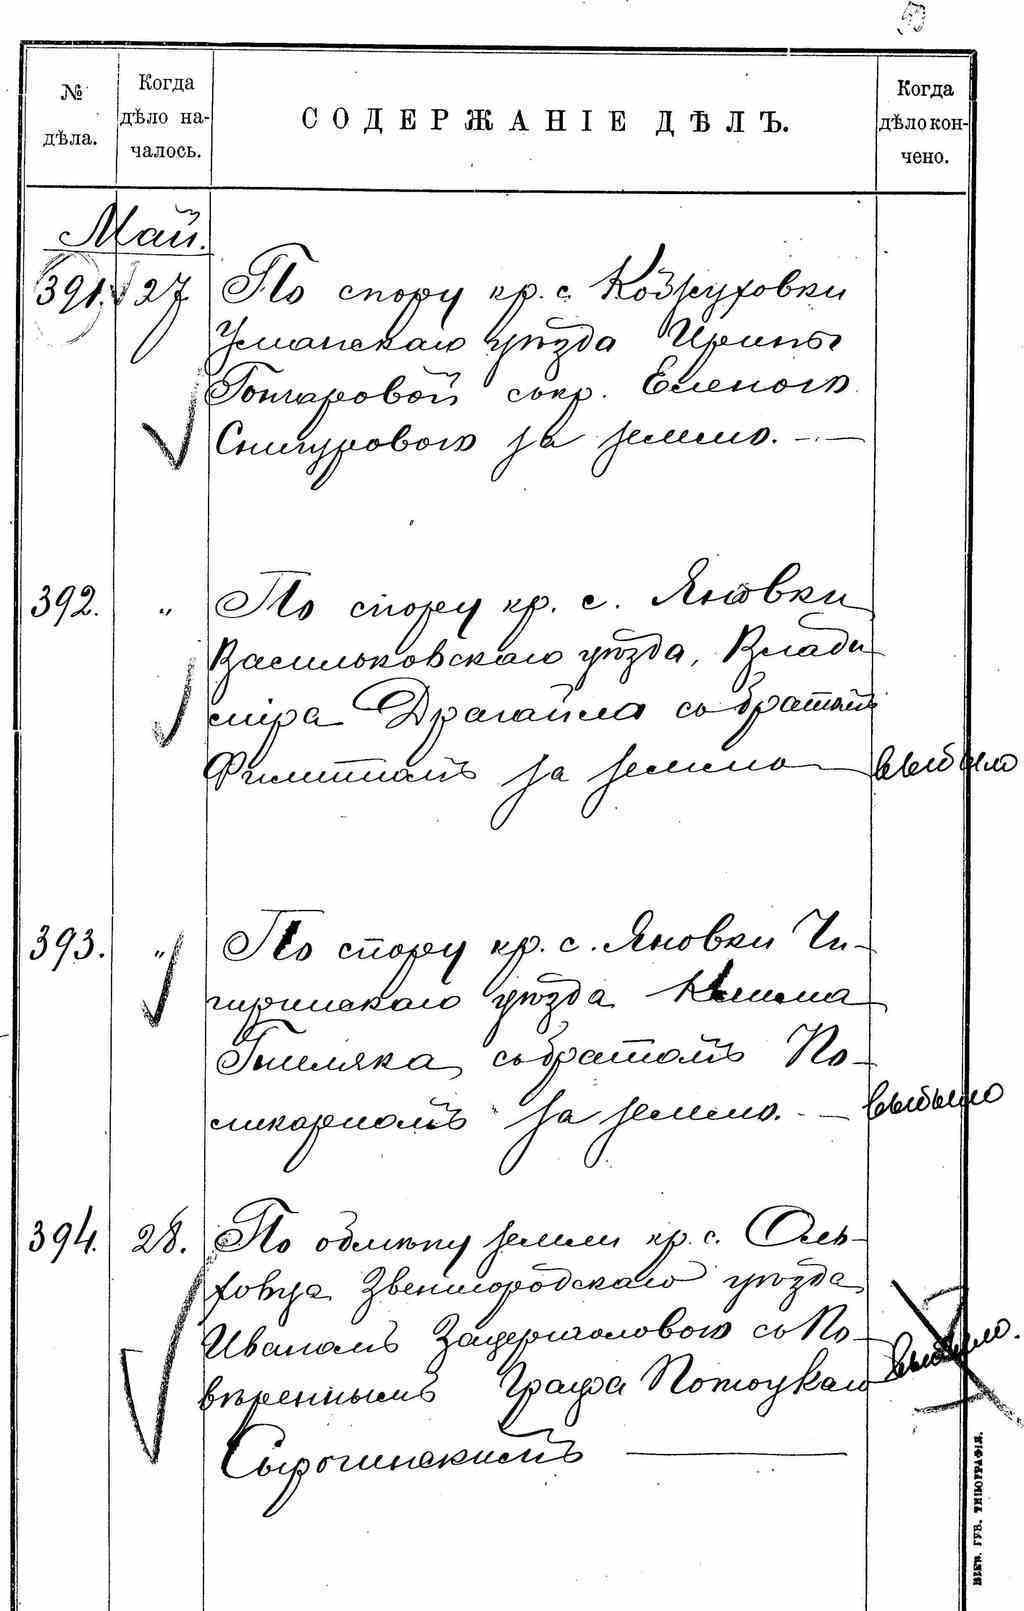 № дѣла.
Когда дѣло началось.
СОДЕРЖАНІЕ ДѢЛЪ.
Когда дѣло кончено.
Май.
391. 27 По спору кр. с. Козжуховки
Уманскаго уѣзда Ирины
Гончаровой съ кр. Еленою
Снигуровою за землю. —
392. „ По спору кр. с. Яновки
Васильковскаго уѣзда, Влади
міра Драгайла съ братомъ
Филиппомъ за землю — выбыло
393. „ По спору кр. с. Яновки Чи-
гиринскаго уѣзда Клима
Гмиляка съ братомъ По-
ликарпомъ за землю. — выбыло
394. 28. По обмѣну земли кр. с. Оль-
ховца Звенигородскаго уѣзда
Иваномъ Задерголовою съ По-
вѣреннымъ Графа Потоцкаго выбыло.
Сырочинскимъ —
КІЕВ. ГУБ. ТИПОГРАФІЯ.